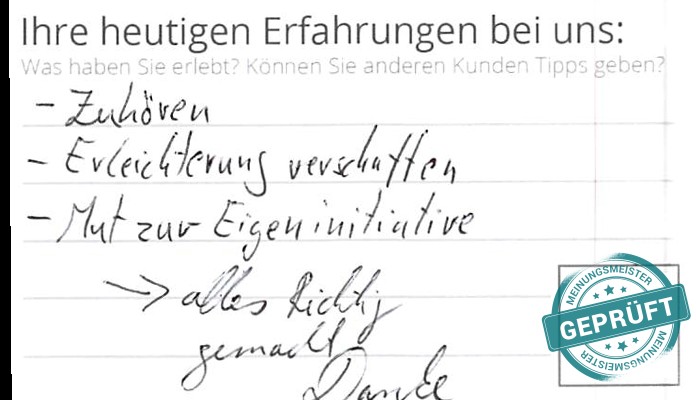 Ihre heutigen Erfahrungen bei uns:
Was haben Sie erlebt? Können Sie anderen Kunden Tipps geben?
- Zuhören
- Erleichterung verschaffen
- Mut zur Eigeninitiative
-> alles Richtig
gemacht
Danke
MEINUNGSMEISTER
GEPRÜFT
MEINUNGSMEISTER